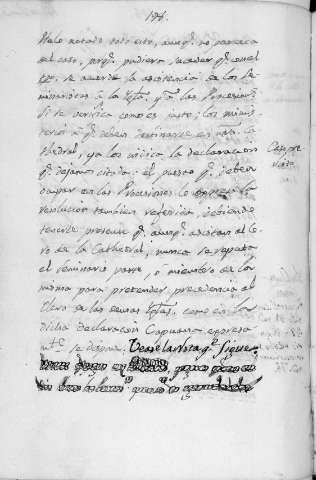 184.
Helo notado todo esto, aunq.e no parezca
del caso, porq.e pudiera suceder q.e con el
tpo. se acuerde la asistencia de los Se-
minaristas à la Ygla. y à las Procesiones
Si se verifica como es justo; los minis-
terios à q.e deben destinarse en una Ca-
thedral, ya los indica la declaracion
q.e dejamos citada: el puesto q.e deben
ocupar en las Procesiones lo expresa la
resolucion tambien referida, debiendo
tenerse presente q.e aunq.e asistan al Co-
ro en la Cathedral, nunca se reputa
el Seminario parte, ò miembro de la
misma para pretender precedencia al
Clero de las demas Yglas. como en la
dicha declaracion Capuana expresa
m.te se decide. Vease la Nota q.e sigue.